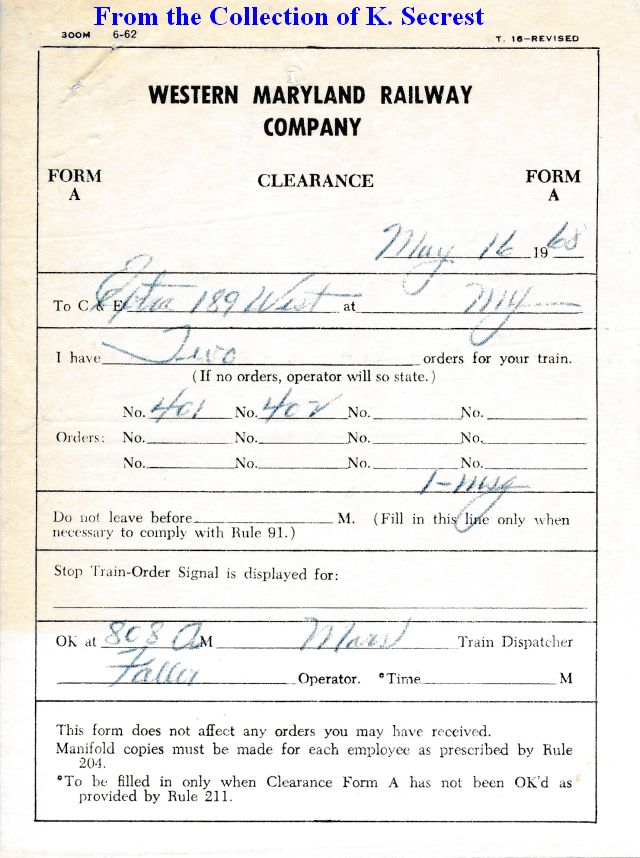 From the Collection of K. Secrest
300M 6-62 T. 16—REVISED
WESTERN MARYLAND RAILWAY
COMPANY
FORM A CLEARANCE FORM A
May 16 1968
To C & E Extra 189 West at MY
I have Two orders for your train.
(If no orders, operator will so state.)
No. 401 No. 402 No. No.
Orders: No. No. No. No.
No. No. No. No.
1-msg
Do not leave before M. (Fill in this line only when
necessary to comply with Rule 91.)
Stop Train-Order Signal is displayed for:
OK at 808 A M Train Dispatcher
Operator. *Time M
This form does not affect any orders you may have received.
Manifold copies must be made for each employee as prescribed by Rule
204.
*To be filled in only when Clearance Form A has not been OK'd as
provided by Rule 211.